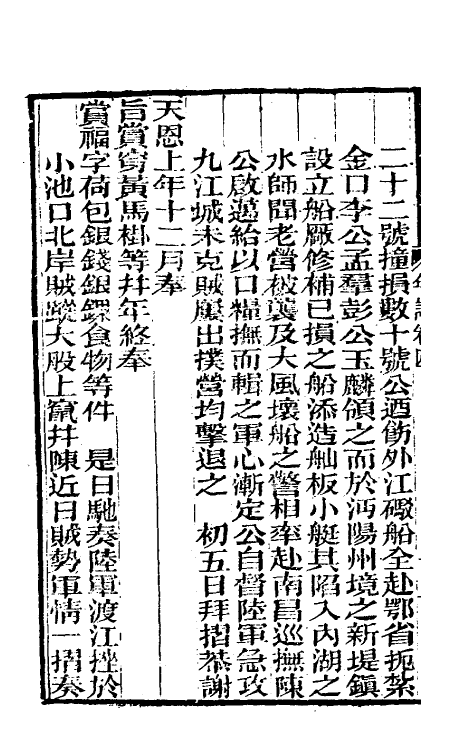 二十二號撞損數十號公遒飭外江礮船全赴鄂省扼紮
金口李公孟羣彭公玉麟領之而於沔陽州境之新堤鎮
設立船廠修補已損之船添造舢板小艇其陷入內湖之
水師聞老營被襲及大風壞船之警相率赴南昌巡撫陳
公啟邁給以口糧撫而輯之軍心漸定公自督陸軍急攻
九江城未克賊屢出撲營均擊退之　初五日拜摺恭謝
天恩上年十二月奉
旨賞穿黃馬褂等并年終奉
賞福字荷包銀錢銀錁食物等件　是日馳奏陸軍渡江挫於
小池口北岸賊蹤大股上竄并陳近日賊勢軍情一摺奏